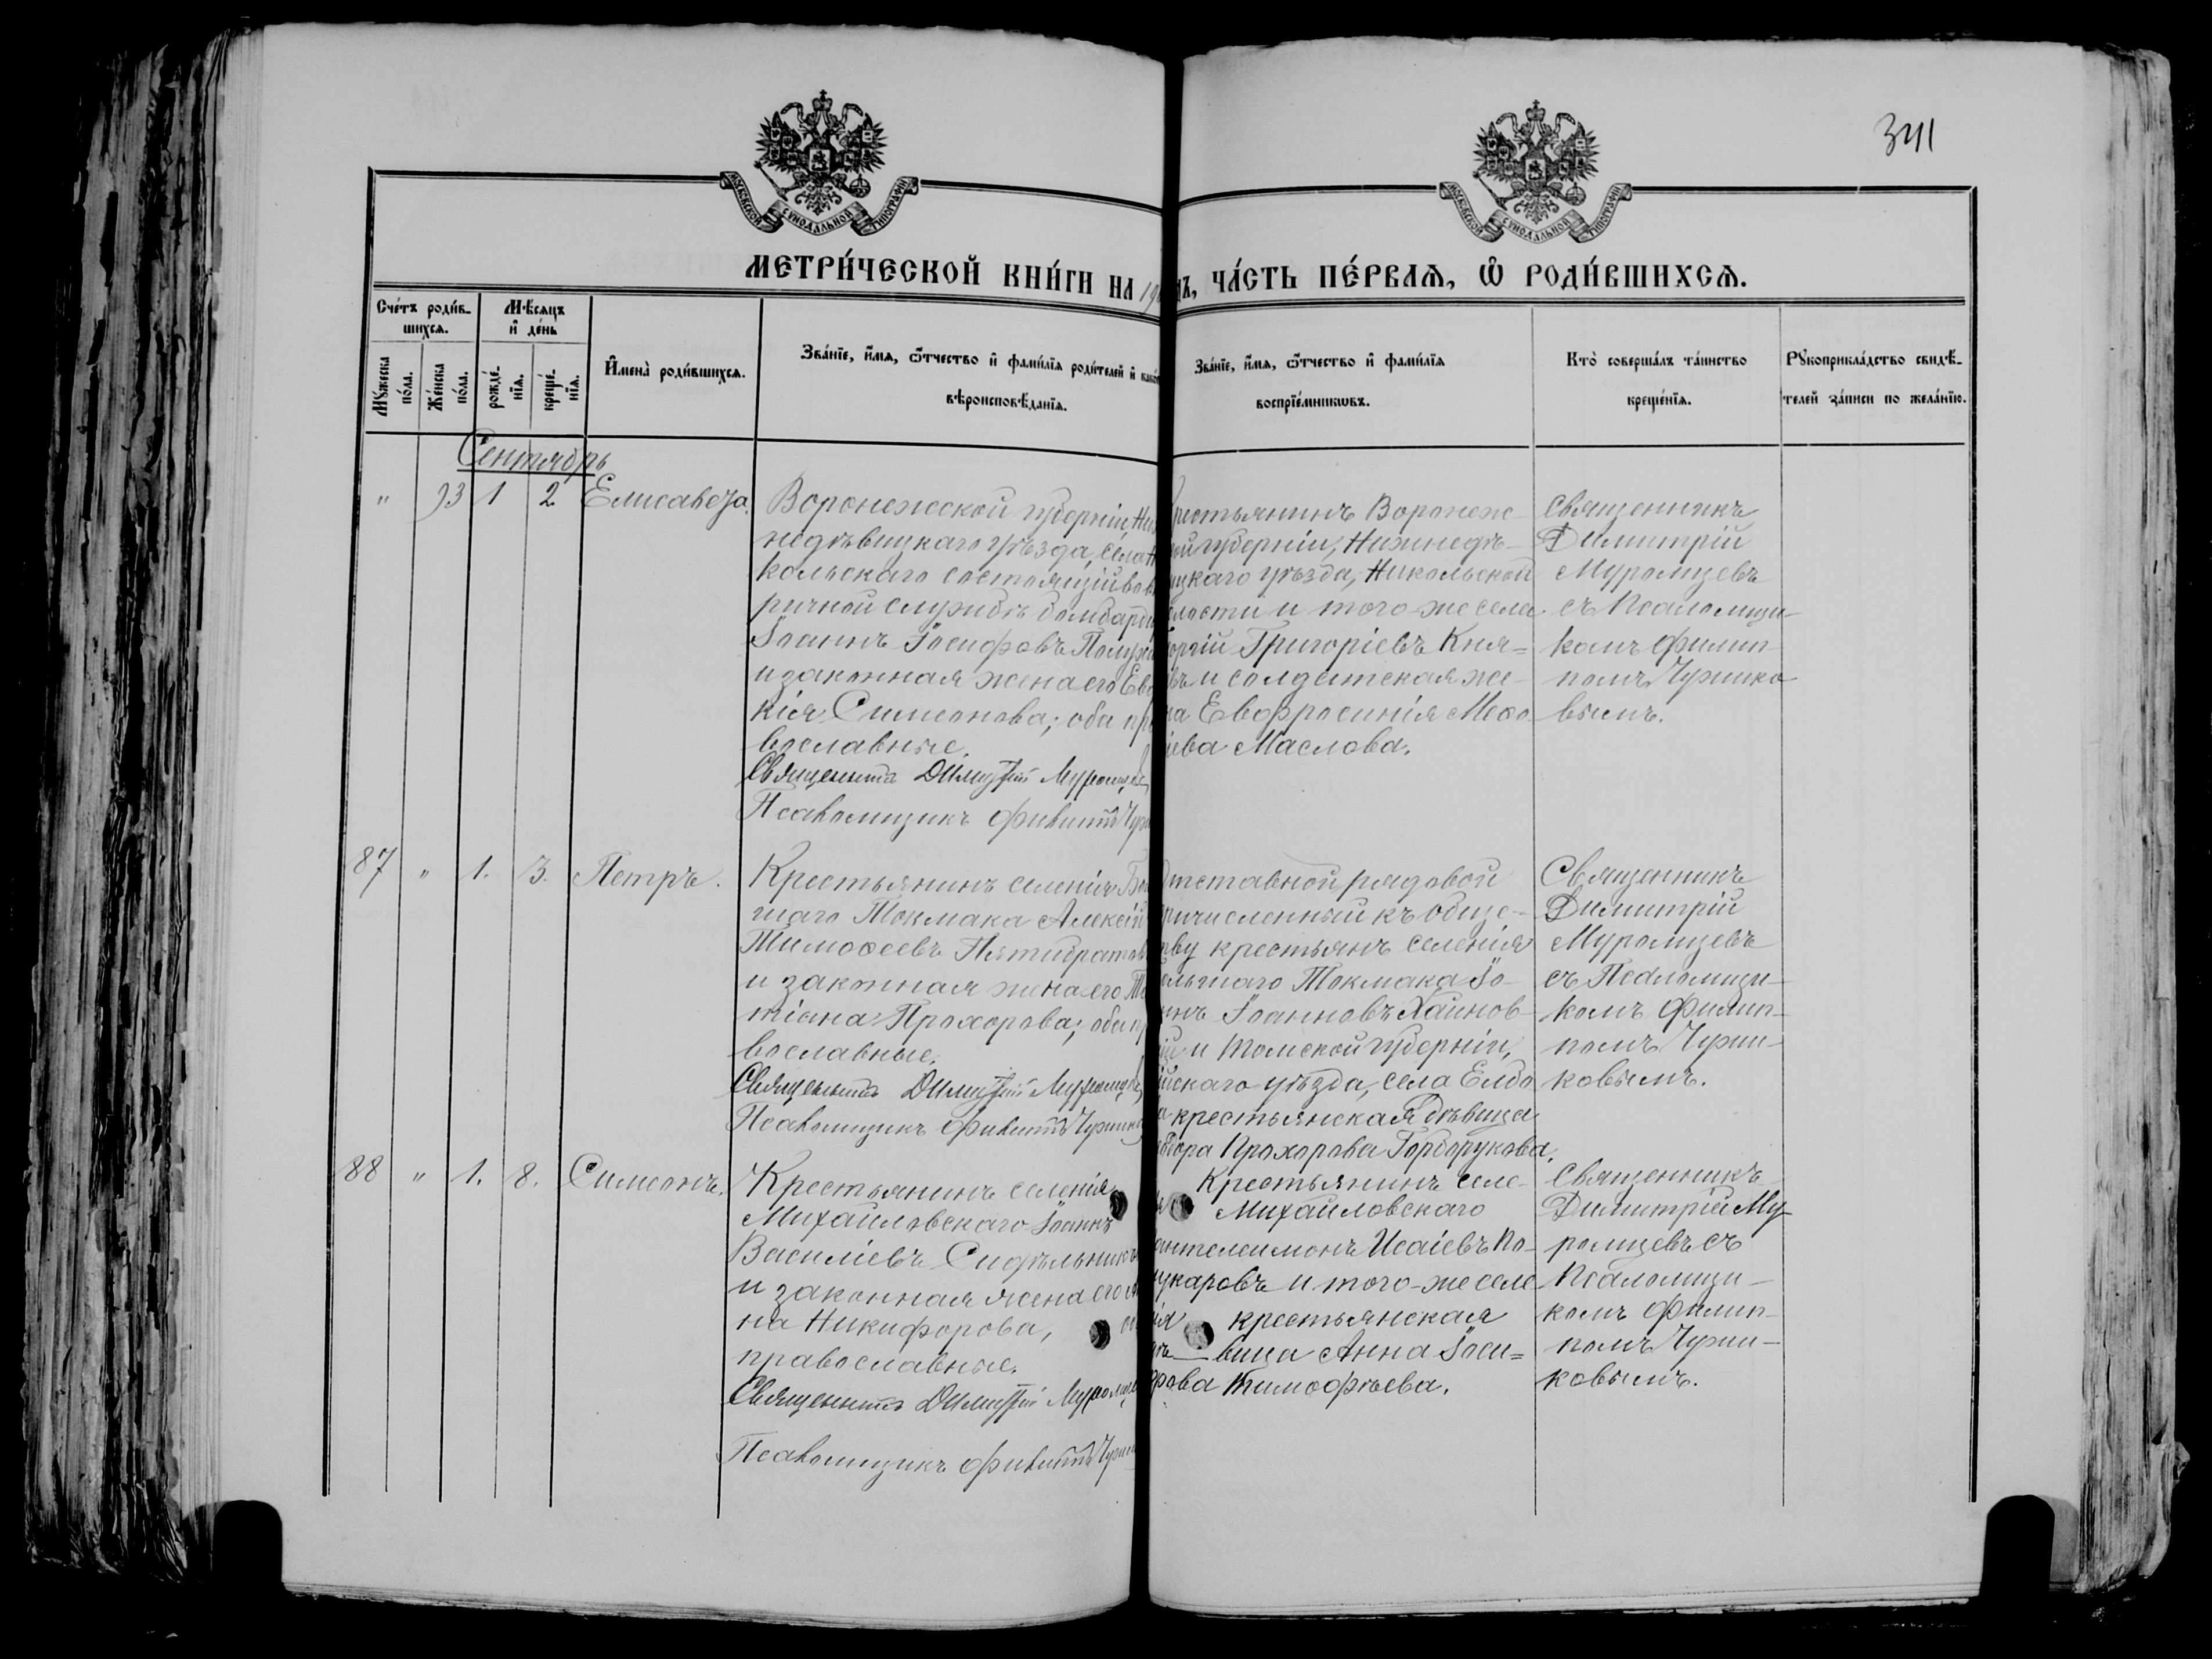 341
МОСКОВСКОЙ СѴНОДАЛЬНОЙ ТИПОГРАФІИ
МОСКОВСКОЙ СѴНОДАЛЬНОЙ ТИПОГРАФІИ
МЕТРИ́ЧЕСКОЙ КНИ́ГИ НА 19
ЧА́СТЬ ПЕ́РВАѦ, Ѡ҆ РОДИ́ВШИХСѦ.
Сче́тъ роди́в-
шихсѧ.
Мꙋ́жеска по́ла.
Же́нска по́ла.
Мѣ́сѧцъ
и҆ де́нь
рожде́-
нїѧ.
креще́-
нїѧ.
И҆мена̀ роди́вшихсѧ.
Зва́нїе, и҆́мѧ, ѻ҆́тчество и҆ фами́лїѧ роди́телей и҆
вѣроисповѣ́данїѧ.
Зва́нїе, и҆́мѧ, ѻ҆́тчество и҆ фами́лїѧ
воспрїе́мникωвъ.
Кто̀ соверша́лъ та́инство
креще́нїѧ.
Рꙋкоприкла́дство свидѣ́-
телей за́писи по жела́нїю.
Сентябрь
" 93 1 2 Елисавета.
Воронежской губерніи, Ни
недѣвицкаго уѣзда, села Н
кольскаго состоящій во в
ричной службѣ бомбарди
Іоаннъ Іосифовъ
и законная жена его Евд
кія Симеонова; оба пр
вославные.
Священникъ Димитрій Муромцев
Псаломщикъ Филиппъ
рестьянинъ Воронеж-
ой губерніи, Нижнедѣ-
ицкаго уѣзда, Никольской
лости и того-же села
оргій Григоріевъ Кня-
въ и солдатская же-
на Евфросинія Меѳо
іева Маслова.
Священникъ
Димитрій
Муромцевъ
съ Псаломщи-
комъ Филип-
помъ Чурико
вымъ.
87 " 1. 3. Петръ.
Крестьянинъ селенія Бо
шаго Токмака Алексій
Тимоѳеевъ Пятибратов
и законная жена его Та
тіана Прохорова; оба п
вославные.
Священникъ Димитрій Муромцев
Псаломщикъ Филиппъ
тставной рядовой
ричисленный къ обще-
тву крестьянъ селенія
ольшаго Токмака Іо-
ннъ Іоанновъ Хайнов-
ій и Томской губерніи,
ійскаго уѣзда, села Елбо
а крестьянская дѣвица
Прохорова Горборукова.
Священникъ
Димитрій
Муромцевъ
съ Псаломщи-
комъ Филип-
помъ Чури-
ковымъ.
88 " 1. 8. Симеонъ.
Крестьянинъ селенія
Михайловскаго Іоаннъ
Василіевъ Сидѣльник
и законная жена его А
на Никифорова,
православные.
Священникъ Димитрій Муромце
Псаломщикъ Филиппъ
Крестьянинъ селе-
Михайловскаго
антелеимонъ Исаіевъ По-
укаровъ и того-же селе
ія крестьянская
вица Анна Іоси-
фова Тимофѣева.
Священникъ
Димитрій Му-
ромцевъ съ
Псаломщи-
комъ Филип-
помъ Чури-
ковымъ.